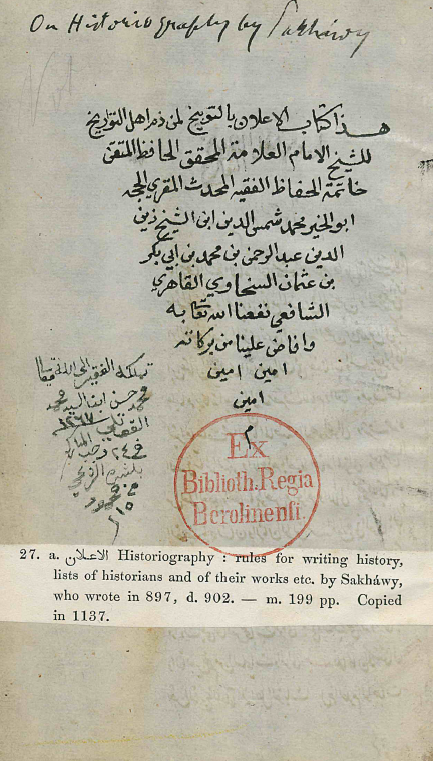 On Historiography by Sakháwy
هذا كتاب الاعلان بالتوبيخ لمن ذم اهل التواريخ
للشيخ الامام العلامة المحقق الحافظ المتقن
خاتمة الحفاظ الفقيه المحدث المقري الحجة
ابو الخير محمد شمس الدين ابن الشيخ زين
الدين عبد الرحمن بن محمد بن ابي بكر
بن عثمان السخاوي القاهري
الشافعي نفعنا الله تعا به
وافاض علينا من بركاته
امين امين
امين
م
تملكه الفقير الى الله تعا
محمد حسن ابن السيد محمد
في ٢٤ رجب
Ex
Biblioth. Regia
Berolinensi.
27. a. الاعلان Historiography : rules for writing history,
lists of historians and of their works etc. by Sakháwy,
who wrote in 897, d. 902. — m. 199 pp. Copied
in 1137.